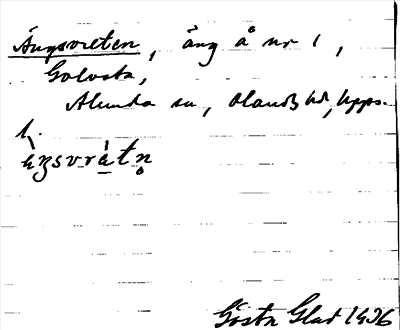 Ängsvreten, äng å nr 1,
Golvsta,
Alunda sn, Olands hd, Upps.
l.
Gösta Glad 1936